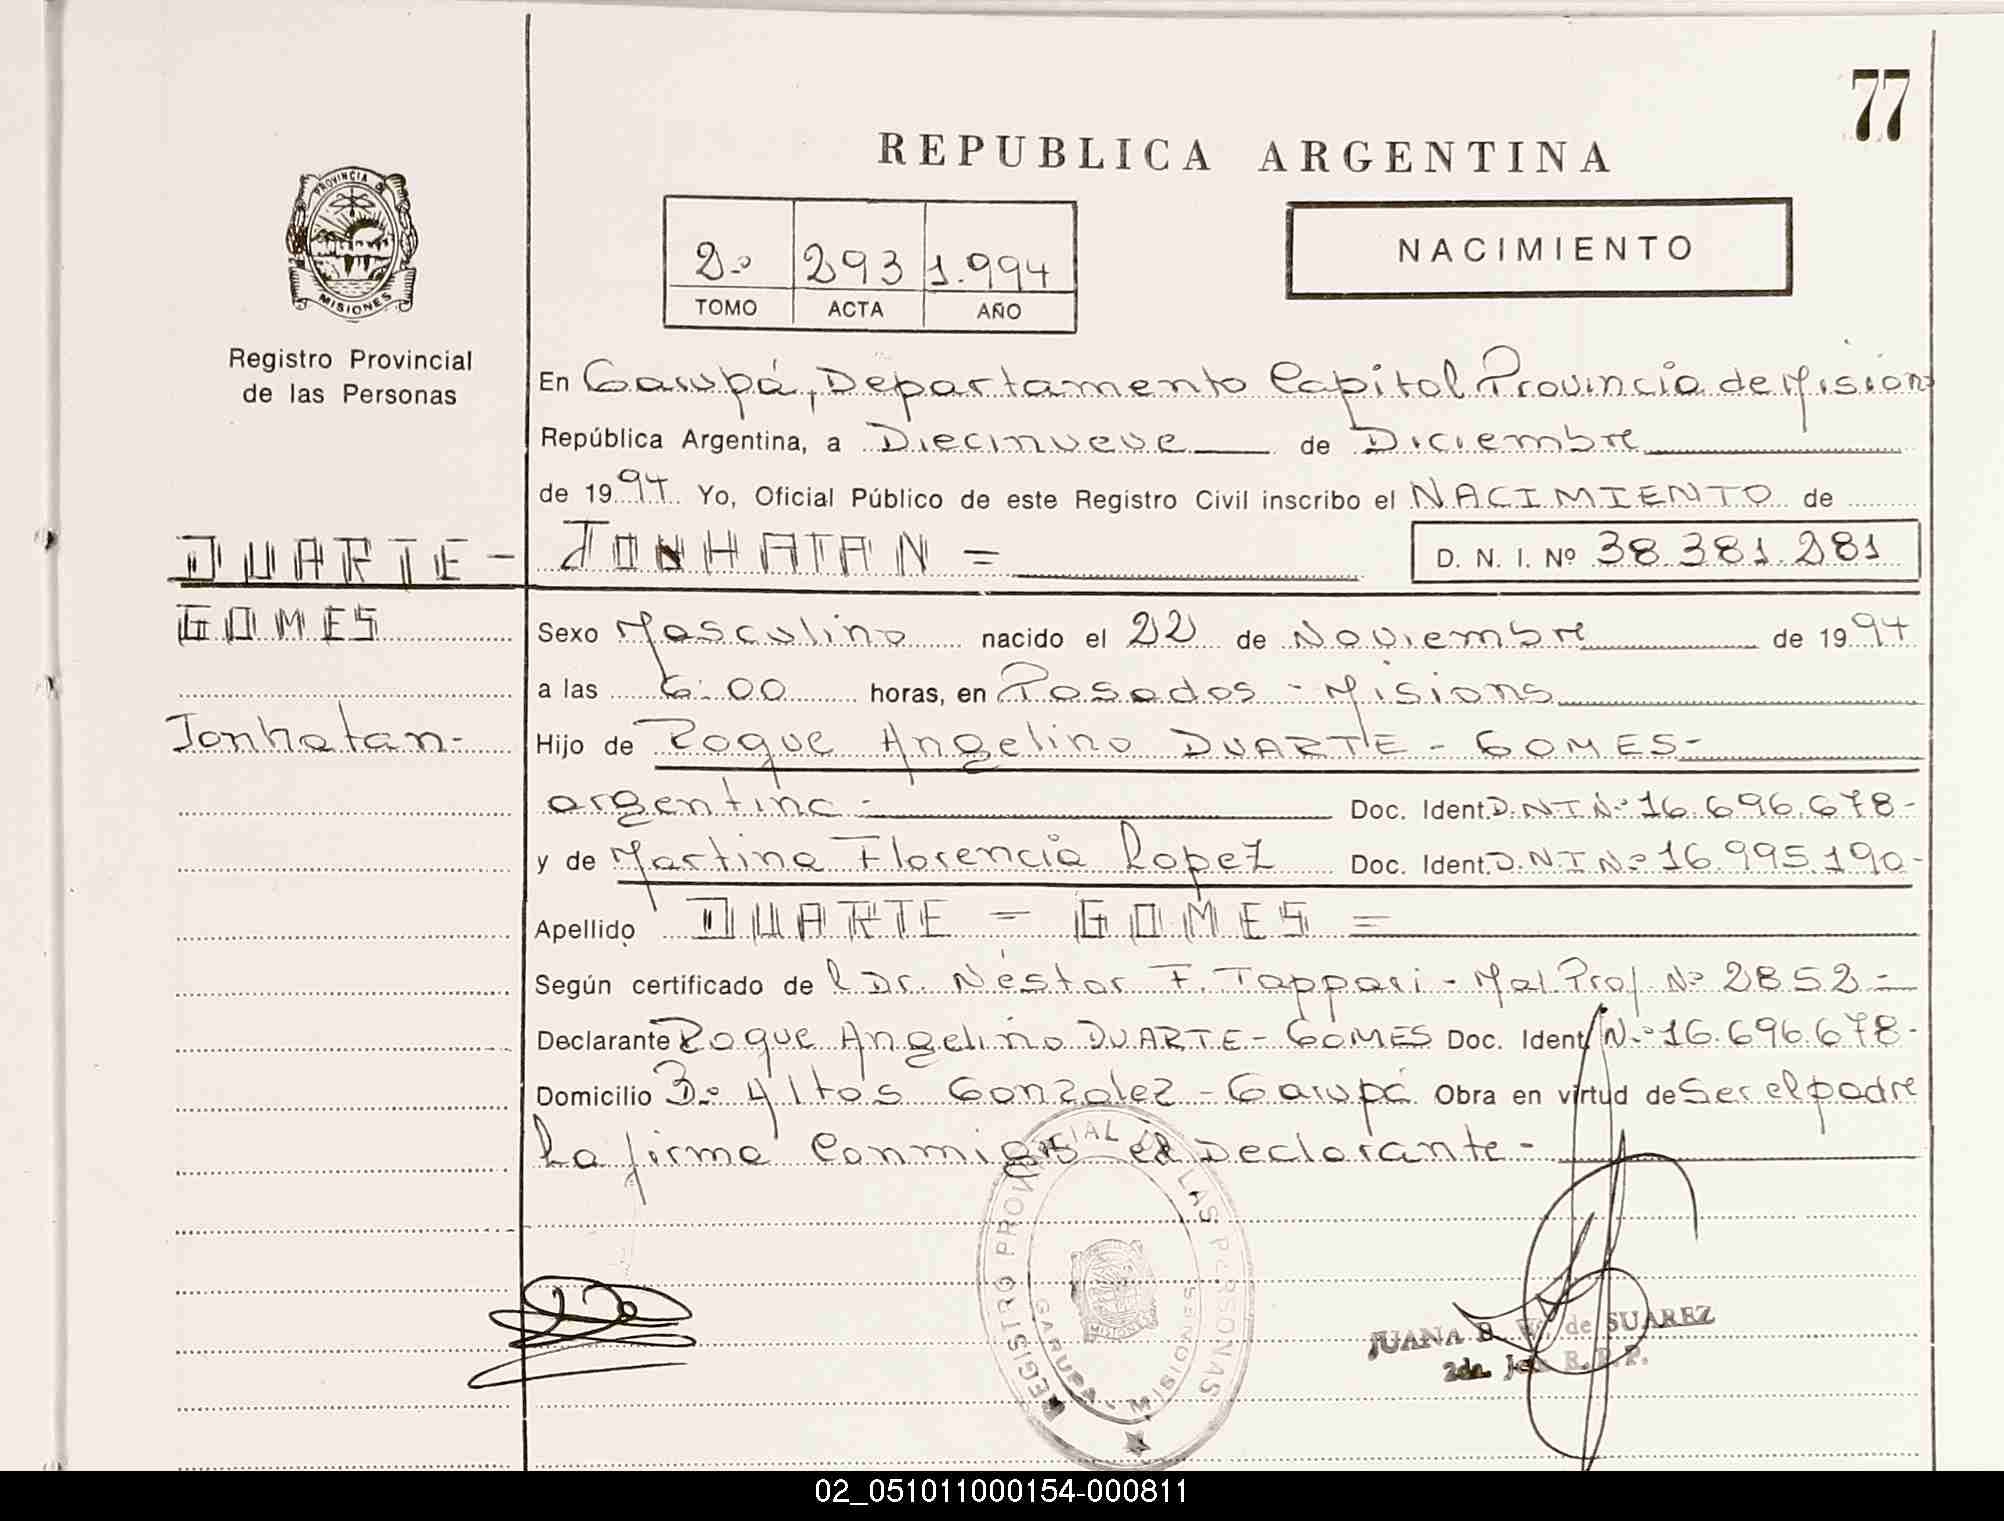 77
REPUBLICA ARGENTINA
PROVINCIA DE
MISIONES
Registro Provincial
de las Personas
2º 293 1.994
TOMO ACTA AÑO
NACIMIENTO
En Garupá, Departamento Capital Provincia de Misiones
República Argentina, a Diecinueve de Diciembre
de 1994 Yo, Oficial Público de este Registro Civil inscribo el NACIMIENTO de
DUARTE - JONHATAN = D. N. I. Nº 38.381.281
GOMES Sexo Masculino nacido el 22 de Noviembre de 1994
a las 6:00 horas, en Posadas - Misions
Jonhatan- Hijo de Roque Angelino DUARTE - GOMES-
argentina - Doc. Ident. D.N.I Nº 16.696.678-
y de Martina Florencia Lopez Doc. Ident. D.N.I Nº 16.995.190-
Apellido DUARTE = GOMES =
Según certificado de l Dr. Néstor F. Tappari - Mat. Prof. Nº 2852 -
Declarante Roque Angelino DUARTE - GOMES Doc. Ident. Nº 16.696.678-
Domicilio 3º Altos Gonzalez - Garupá Obra en virtud de Ser el padre
La firma Conmigo el Declarante -
REGISTRO PROVINCIAL DE LAS PERSONAS
GARUPA - MISIONES
JUANA B. W. de SUAREZ
2da. Jefa R.P.P.
02_051011000154-000811